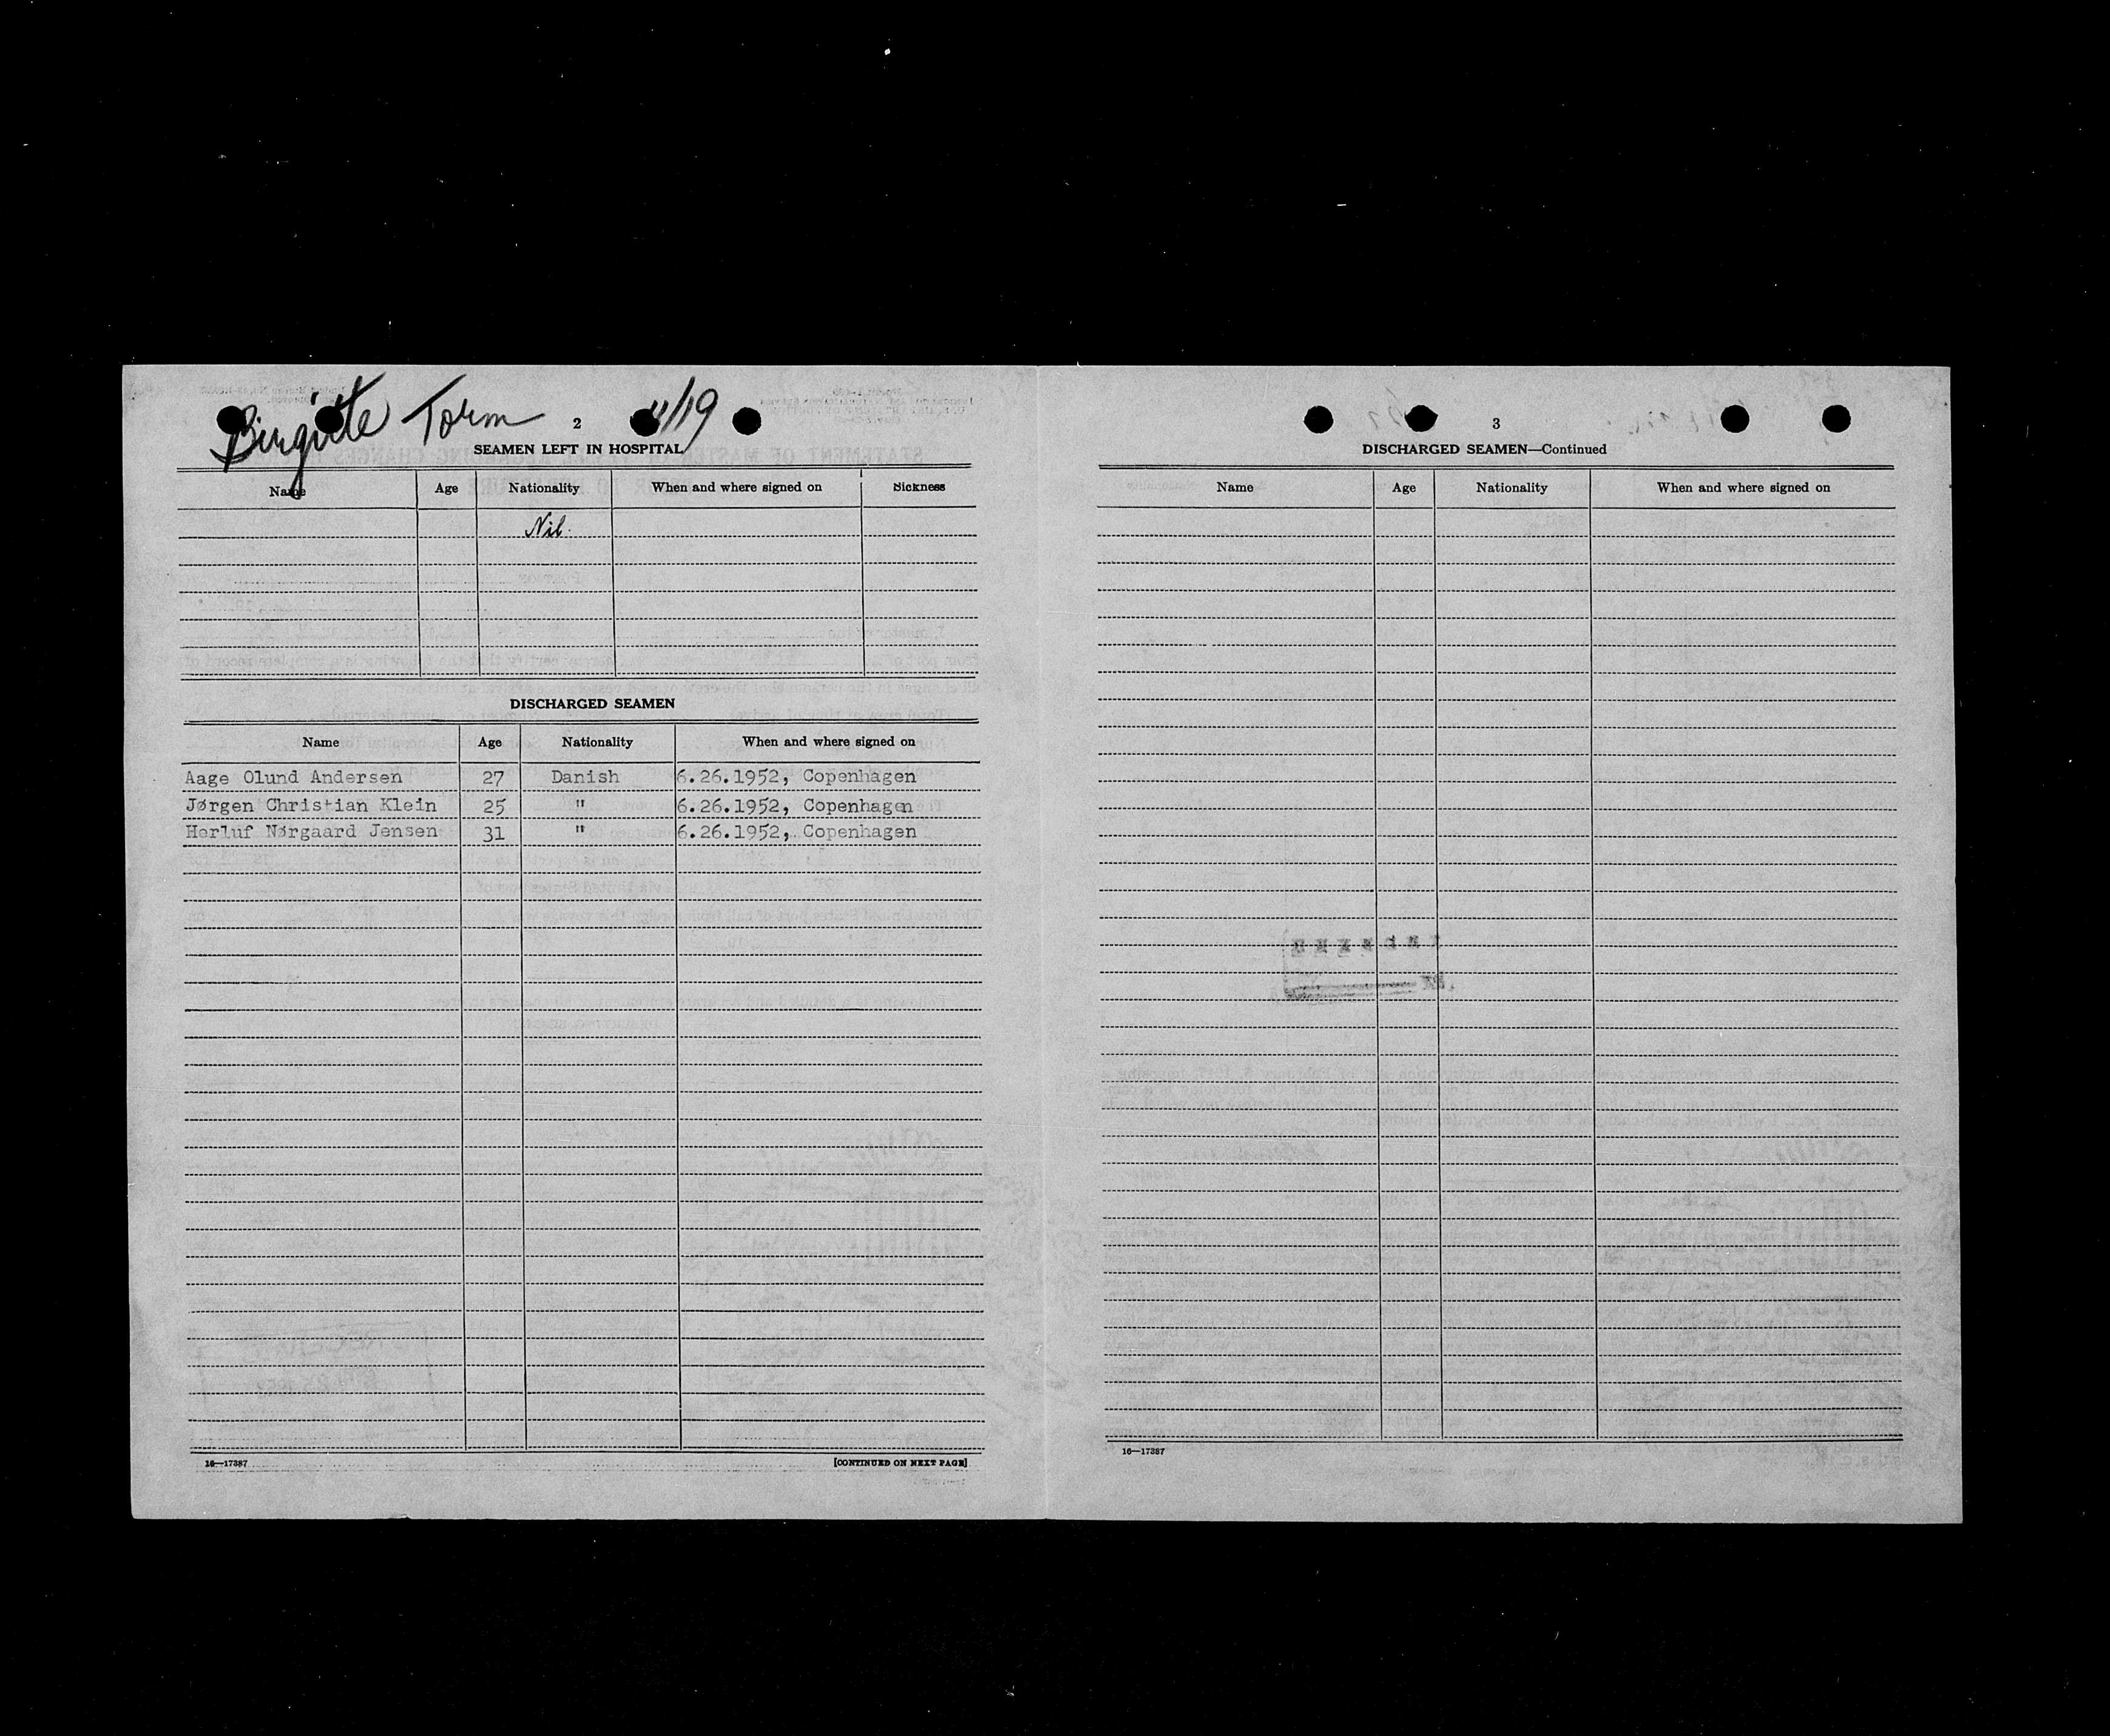 Birgitte Torm 2 11/19
SEAMEN LEFT IN HOSPITAL
Name Age Nationality When and where signed on Sickness
Nil.
DISCHARGED SEAMEN
Name Age Nationality When and where signed on
Aage Olund Andersen 27 Danish 6.26.1952, Copenhagen
Jørgen Christian Klein 25 " 6.26.1952, Copenhagen
Herluf Nørgaard Jensen 31 " 6.26.1952, Copenhagen
16—17387 [CONTINUED ON NEXT PAGE]
3
DISCHARGED SEAMEN—Continued
Name Age Nationality When and where signed on
16—17387